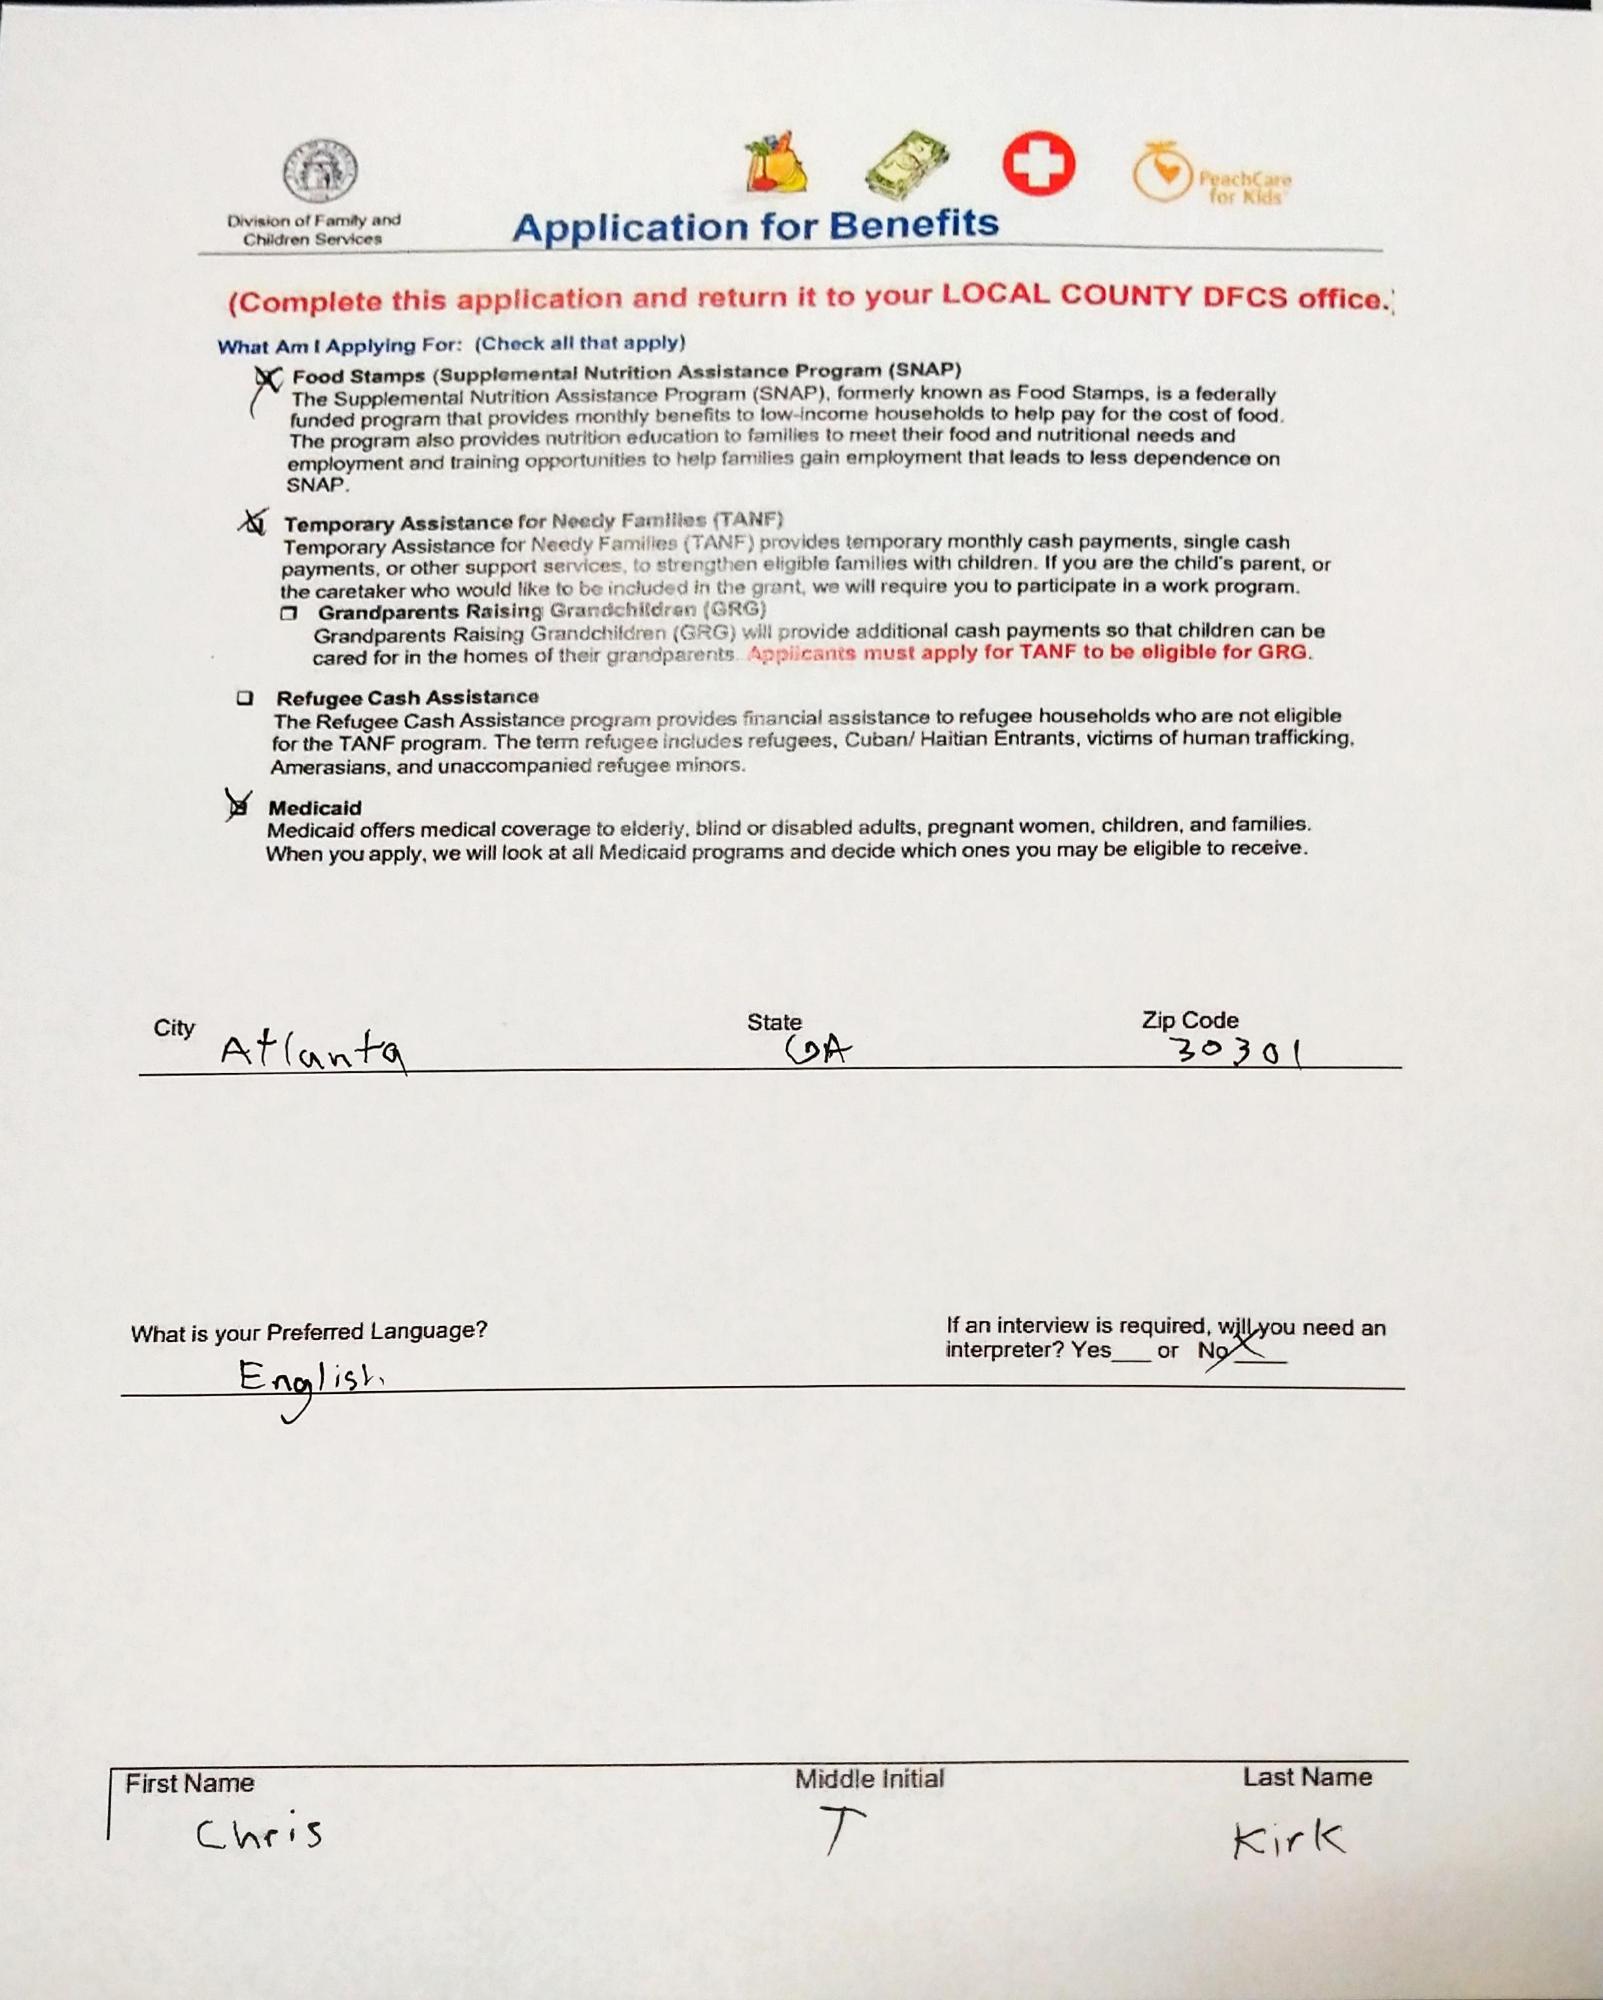 PeachCare
for Kids
Division of Family and
Children Services
Application for Benefits
(Complete this application and return it to your LOCAL COUNTY DFCS office.)
What Am I Applying For: (Check all that apply)
Food Stamps (Supplemental Nutrition Assistance Program (SNAP)
The Supplemental Nutrition Assistance Program (SNAP), formerly known as Food Stamps, is a federally
funded program that provides monthly benefits to low-income households to help pay for the cost of food.
The program also provides nutrition education to families to meet their food and nutritional needs and
employment and training opportunities to help families gain employment that leads to less dependence on
SNAP.
Temporary Assistance for Needy Families (TANF)
Temporary Assistance for Needy Families (TANF) provides temporary monthly cash payments, single cash
payments, or other support services, to strengthen eligible families with children. If you are the child's parent, or
the caretaker who would like to be included in the grant, we will require you to participate in a work program.
Grandparents Raising Grandchildren (GRG)
Grandparents Raising Grandchildren (GRG) will provide additional cash payments so that children can be
cared for in the homes of their grandparents. Applicants must apply for TANF to be eligible for GRG.
Refugee Cash Assistance
The Refugee Cash Assistance program provides financial assistance to refugee households who are not eligible
for the TANF program. The term refugee includes refugees, Cuban/ Haitian Entrants, victims of human trafficking,
Amerasians, and unaccompanied refugee minors.
Medicaid
Medicaid offers medical coverage to elderly, blind or disabled adults, pregnant women, children, and families.
When you apply, we will look at all Medicaid programs and decide which ones you may be eligible to receive.
City State Zip Code
Atlanta GA 30301
What is your Preferred Language? If an interview is required, will you need an
interpreter? Yes___ or No X
English
First Name Middle Initial Last Name
Chris T Kirk